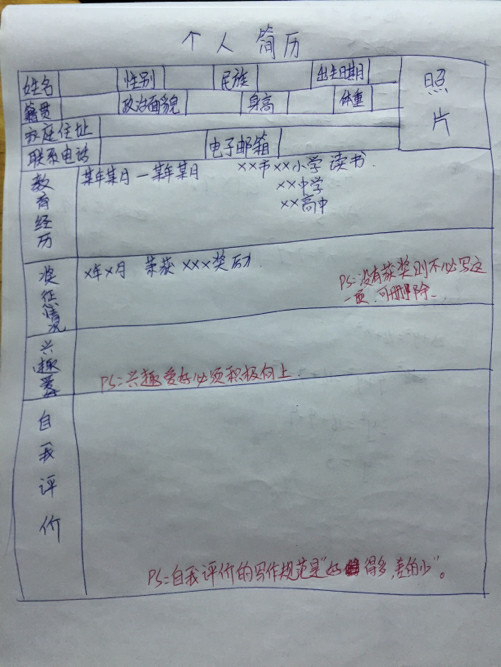 个人简历
姓名 性别 民族 出生日期 照片
籍贯 政治面貌 身高 体重
家庭住址
联系电话 电子邮箱
教育经历
某年某月—某年某月 ××市××小学 读书
××中学
××高中
奖惩情况
×年×月 荣获 ×××奖励
PS:没有获奖则不必写这
一项,可删除.
兴趣爱好
PS:兴趣爱好必须积极向上.
自我评价
PS:自我评价的写作规范是"好得多,差的少"。